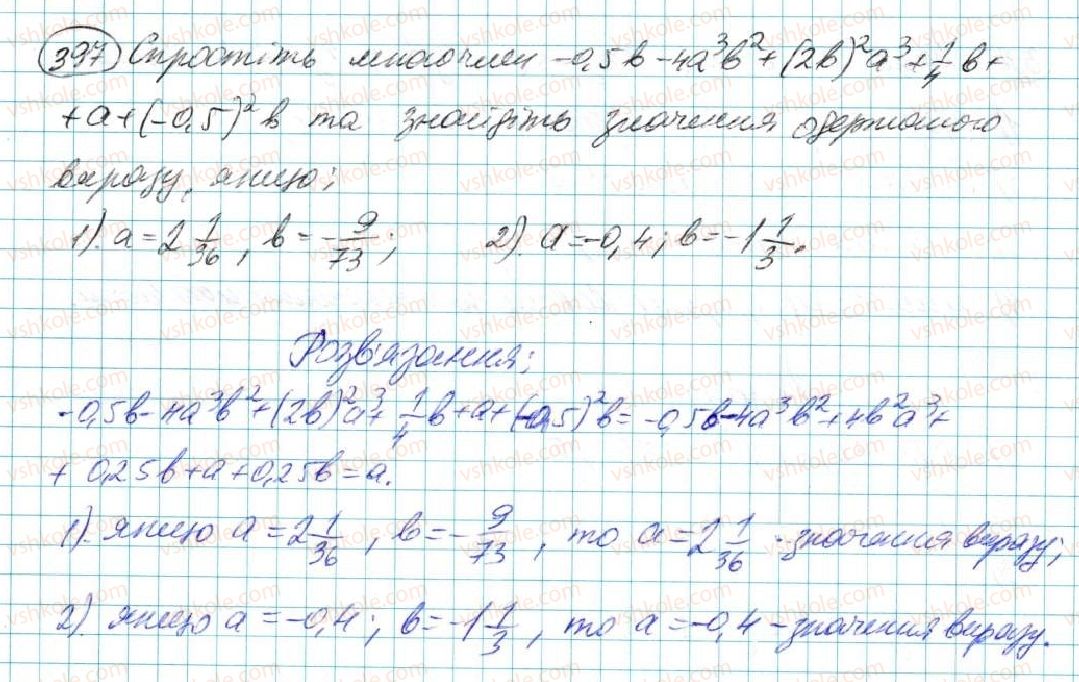 397 Спростіть многочлен -0,5b - 4a³b² + (2b)²a³ + 1/4 b +
+ a + (-0,5)²b та знайдіть значення одержаного
виразу, якщо:
1). a = 2 1/36, b = - 9/73; 2). a = -0,4; b = -1 1/3.
Розв'язання:
-0,5b - 4a³b² + (2b)²a³ + 1/4 b + a + (-0,5)²b = -0,5b - 4a³b² + 4b²a³ +
+ 0,25b + a + 0,25b = a.
1). якщо a = 2 1/36, b = - 9/73, то a = 2 1/36 - значення виразу;
2). якщо a = -0,4; b = -1 1/3, то a = -0,4 - значення виразу.
vshkole.com